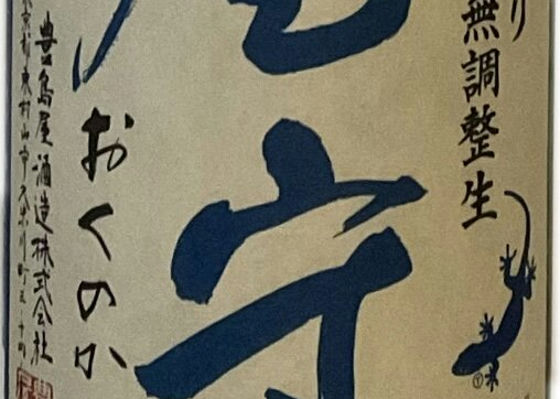 り
無調整生
守
おくのか
豊島屋酒造株式会社
京都東村山市久米川町三-十四